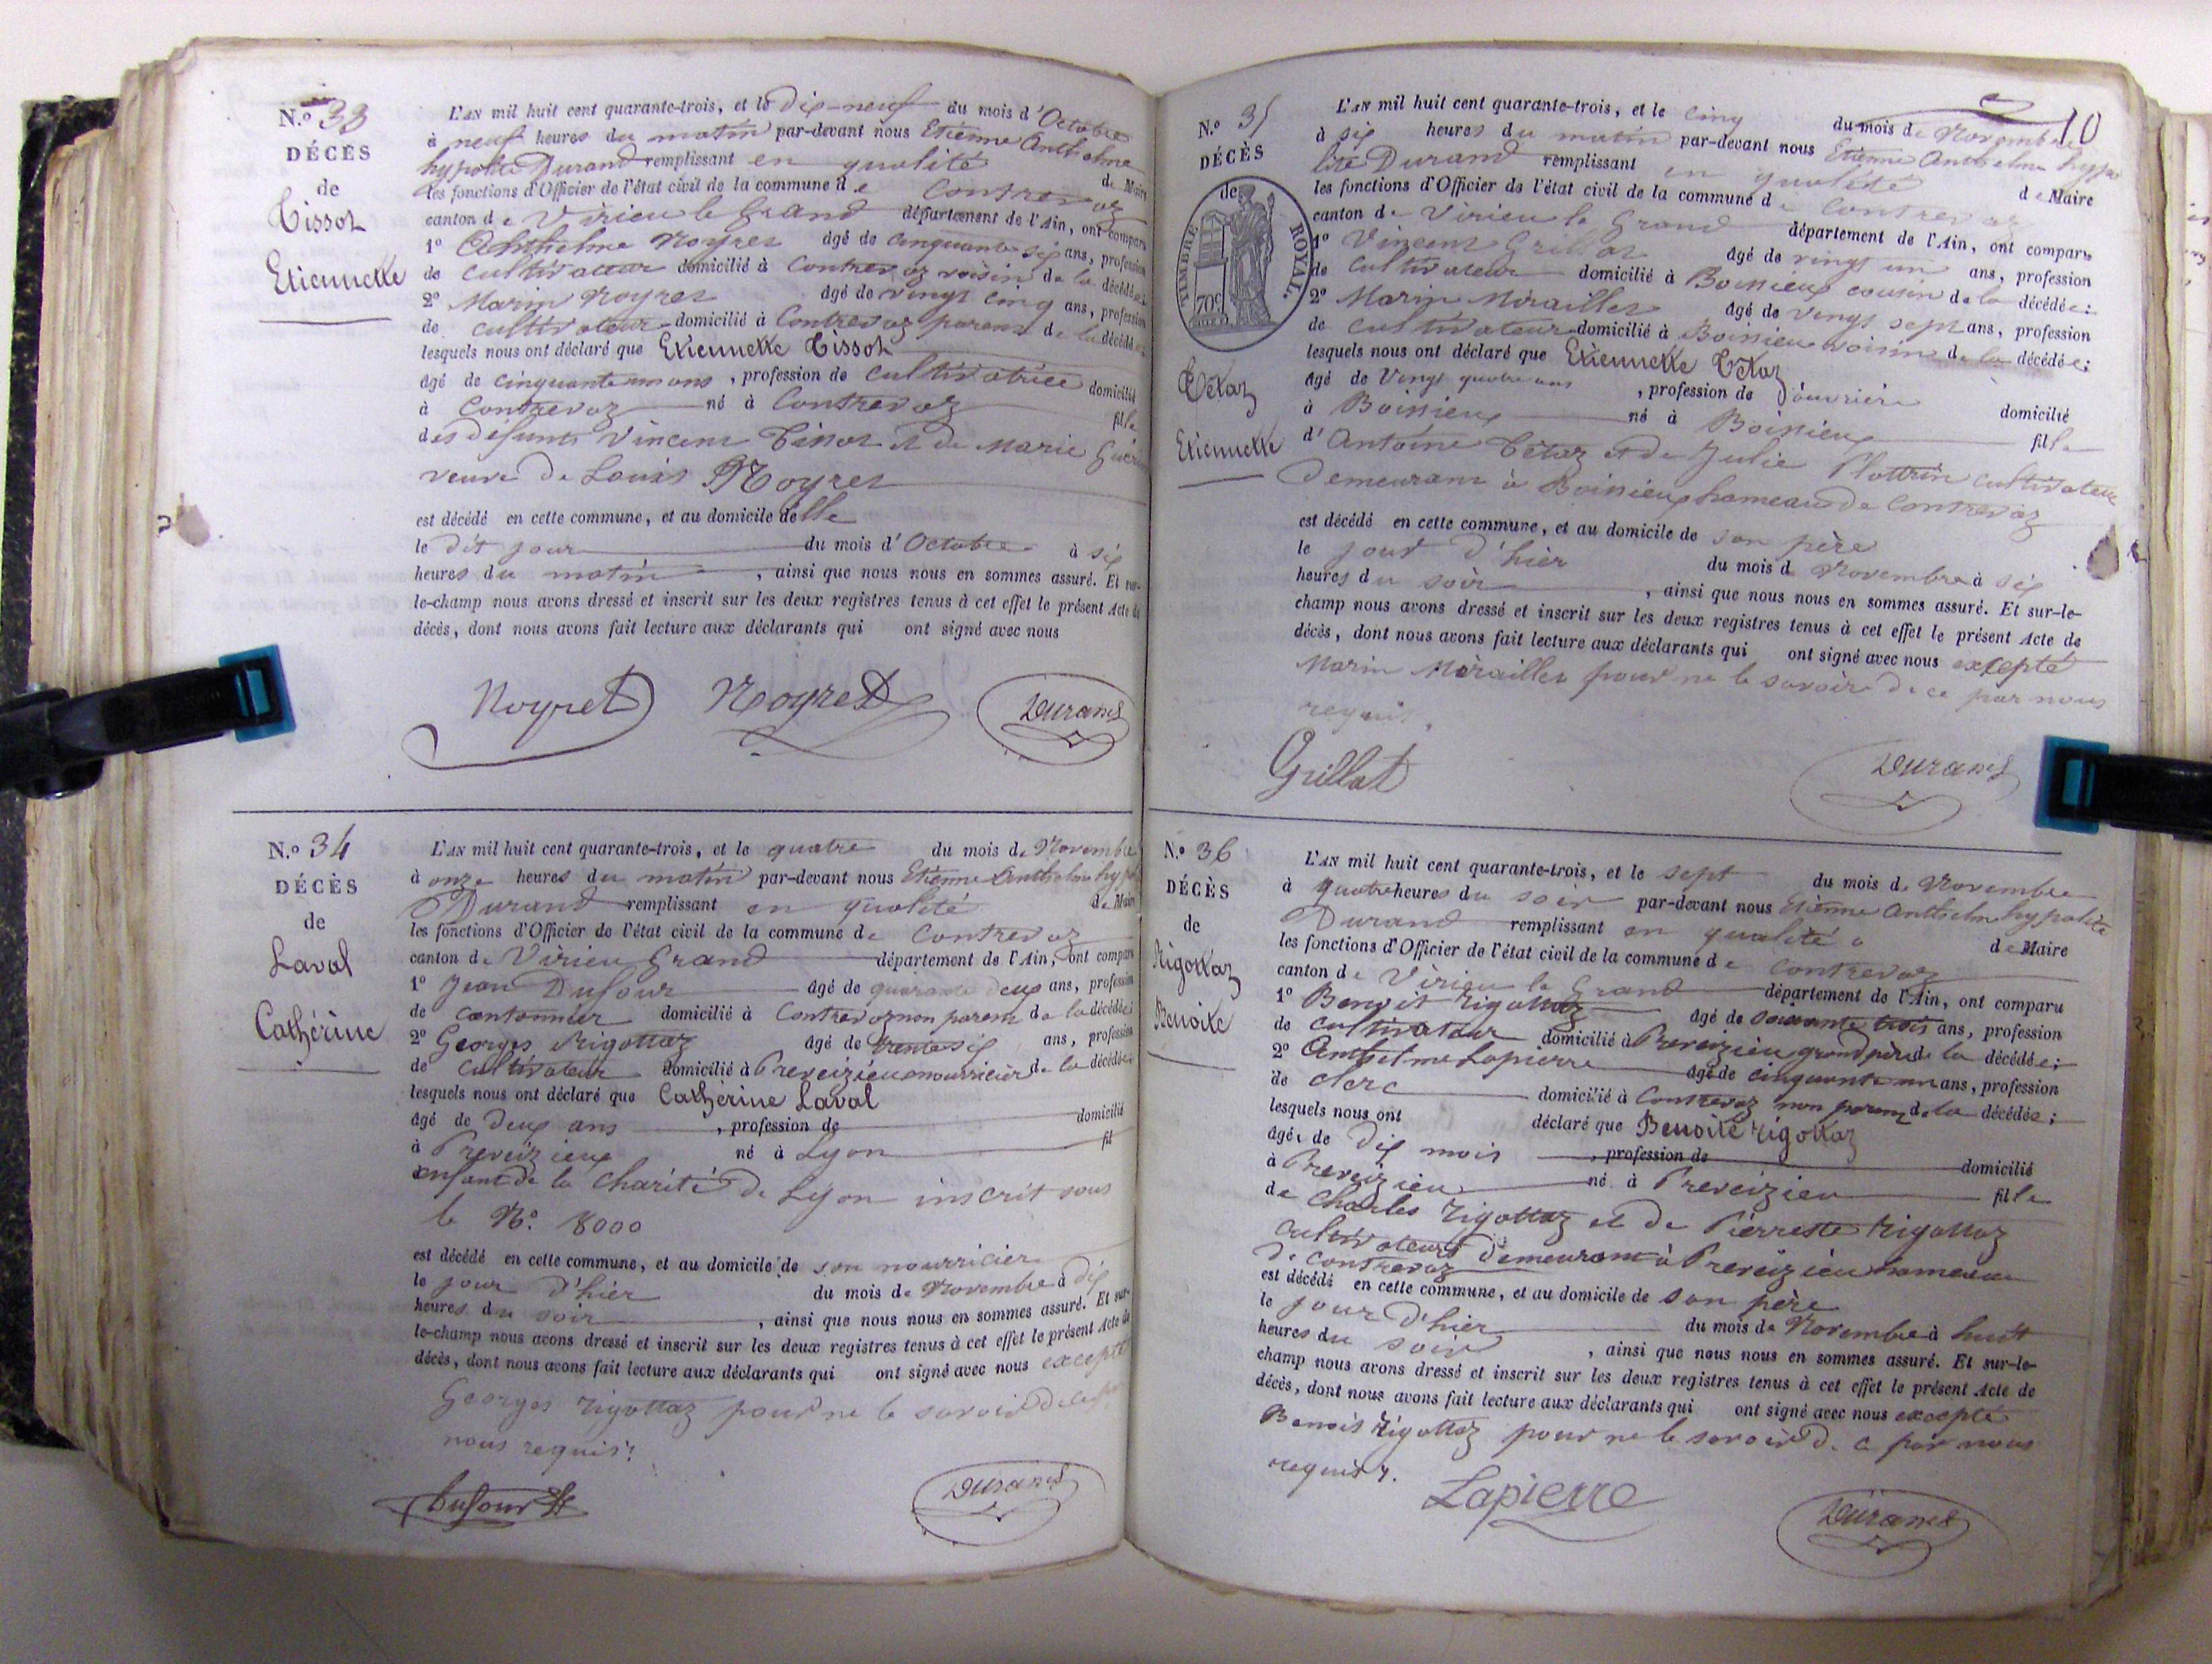 N.º 33
DÉCÈS
de
Tissot
Etiennette
L'AN mil huit cent quarante-trois, et le dix-neuf du mois d'Octobre
à neuf heures du matin par-devant nous Etienne Anthelme
hypolite Durand remplissant en qualité de Maire
les fonctions d'Officier de l'état civil de la commune de Contrevoz
canton de Virieu le Grand département de l'Ain, ont comparu
1º Anthelme Noyret âgé de cinquante six ans, profession
de cultivateur domicilié à Contrevoz voisin de la décédée;
2º Marin Noyret âgé de vingt cinq ans, profession
de cultivateur domicilié à Contrevoz parent de la décédée;
lesquels nous ont déclaré que Etiennette Tissot
âgé de cinquante un ans, profession de cultivatrice domicilié
à Contrevoz né à Contrevoz fille
des défunts Vincent Tissot et de Marie
veuve de Louis Noyret
est décédé en cette commune, et au domicile delle
le dit jour du mois d'Octobre à six
heures du matin, ainsi que nous nous en sommes assuré. Et sur-
le-champ nous avons dressé et inscrit sur les deux registres tenus à cet effet le présent Acte de
décès, dont nous avons fait lecture aux déclarants qui ont signé avec nous
Noyret Noyret Durand
N.º 34
DÉCÈS
de
Laval
Cathérine
L'AN mil huit cent quarante-trois, et le quatre du mois de Novembre
à onze heures du matin par-devant nous Etienne Anthelme hyp
Durand remplissant en qualité de Maire
les fonctions d'Officier de l'état civil de la commune de Contrevoz
canton de Virieu Grand département de l'Ain, ont comparu
1º Jean Dufour âgé de quarante deux ans, profession
de cantonnier domicilié à Contrevoz non parent de la décédée;
2º Georges Rigottaz âgé de trente six ans, profession
de cultivateur domicilié à Preveizieu nourricier de la décédée
lesquels nous ont déclaré que Cathérine Laval
âgé de deux ans, profession de domicilié
à Preveizieux né à Lyon fil
enfant de la Charité de Lyon inscrit sous
le Nº. 8000
est décédé en cette commune, et au domicile de son nourricier
le jour d'hier du mois de Novembre à dix
heures du soir, ainsi que nous nous en sommes assuré. Et sur-
le-champ nous avons dressé et inscrit sur les deux registres tenus à cet effet le présent Acte de
décès, dont nous avons fait lecture aux déclarants qui ont signé avec nous excepté
Georges Rigottaz pour ne le savoir de ce
nous requis.
Dufour Durand
10
N.º 35
DÉCÈS
de
TIMBRE ROYAL.
70c
Tétaz
Etiennette
L'AN mil huit cent quarante-trois, et le cinq du mois de Novembre
à six heures du matin par-devant nous Etienne Anthelme hypo
lite Durand remplissant en qualité de Maire
les fonctions d'Officier de l'état civil de la commune de Contrevoz
canton de Virieu le Grand département de l'Ain, ont comparu
1º Vincent Grillat âgé de vingt un ans, profession
de cultivateur domicilié à Boissieux cousin de la décédée;
2º Marin Miraillet âgé de vingt sept ans, profession
de cultivateur domicilié à Boissieu voisin de la décédée;
lesquels nous ont déclaré que Etiennette Tétaz
âgé de vingt quatre ans, profession d'ouvrière domicilié
à Boissieux né à Boissieux fille
d'Antoine Tétaz et de Julie Plottrin cultivateur
demeurant à Boissieux hameau de Contrevoz
est décédé en cette commune, et au domicile de son père
le jour d'hier du mois de Novembre à six
heures du soir, ainsi que nous nous en sommes assuré. Et sur-le-
champ nous avons dressé et inscrit sur les deux registres tenus à cet effet le présent Acte de
décès, dont nous avons fait lecture aux déclarants qui ont signé avec nous excepté
Marin Miraillet pour ne le savoir de ce par nous
requis.
Grillat Durand
N.º 36
DÉCÈS
de
Rigottaz
Benoite
L'AN mil huit cent quarante-trois, et le sept du mois de Novembre
à quatre heures du soir par-devant nous Etienne Anthelme hypolite
Durand remplissant en qualité de Maire
les fonctions d'Officier de l'état civil de la commune de Contrevoz
canton de Virieu le Grand département de l'Ain, ont comparu
1º Benoit Rigottaz âgé de soixante trois ans, profession
de cultivateur domicilié à Preveizieu grand père de la décédée;
2º Anthelme Lapierre âgé de cinquante un ans, profession
de clerc domicilié à Contrevoz non parent de la décédée;
lesquels nous ont déclaré que Benoite Rigottaz
âgé de dix mois, profession de domicilié
à Preveizieu né à Preveizieu fille
de Charles Rigottaz et de Pierrette Rigottaz
cultivateurs demeurant à Preveizieu hameau
de Contrevoz
est décédé en cette commune, et au domicile de son père
le jour d'hier du mois de Novembre à huit
heures du soir, ainsi que nous nous en sommes assuré. Et sur-le-
champ nous avons dressé et inscrit sur les deux registres tenus à cet effet le présent Acte de
décès, dont nous avons fait lecture aux déclarants qui ont signé avec nous excepté
Benoit Rigottaz pour ne le savoir de ce par nous
requis.
Lapierre Durand